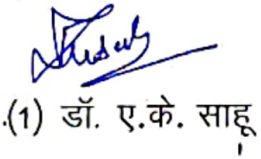 (1) डॉ. ए.के. साहू